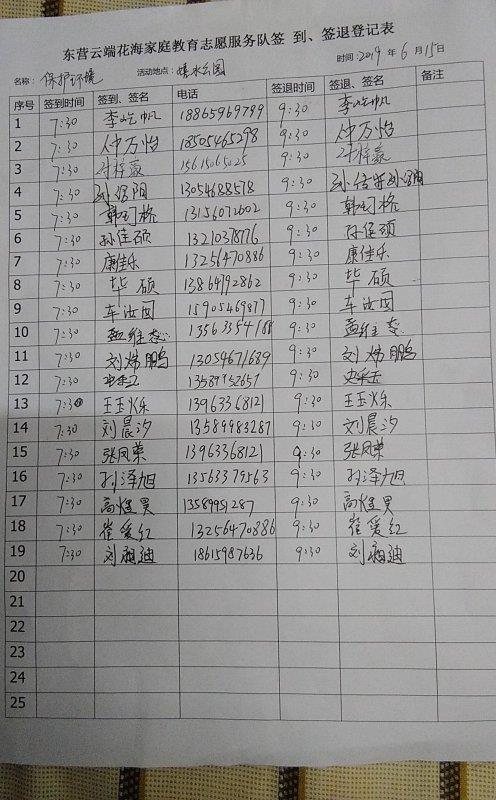 东营云端花海家庭教育志愿服务队签 到、签退登记表
名称： 保护环境 活动地点： 公园 时间：2019 年 6 月 15日
序号 签到时间 签到、签名 电话 签退时间 签退、签名 备注
1 7:30 李屹帆 18865969789 9:30 李屹帆
2 7:30 仲万怡 18505465298 9:30 仲万怡
3 7:30 15615065025 9:30
4 7:30 孙信阳 13054688578 9:30
5 7:30 韩可格 13156072602 9:30 韩可格
6 7:30 孙佳硕 9:30 孙佳硕
7 7:30 康佳乐 13256470886 9:30 康佳乐
8 7:30 毕硕 13864792862 9:30 毕硕
9 7:30 车汝囡 15905469877 9:30 车汝囡
10 7:30 9:30
11 7:30 刘炜鹏 13054671689 9:30 刘炜鹏
12 7:30 13589952657 9:30
13 7:30 王玉烁 13963368121 9:30 王玉烁
14 7:30 刘晨汐 13589983287 9:30 刘晨汐
15 7:30 张凤荣 13963368121 9:30 张凤荣
16 7:30 孙泽旭 13563379563 9:30 孙泽旭
17 7:30 高煜昊 13589951287 9:30 高煜昊
18 7:30 崔爱红 13256470886 9:30 崔爱红
19 7:30 18615987636 9:30
20
21
22
23
24
25